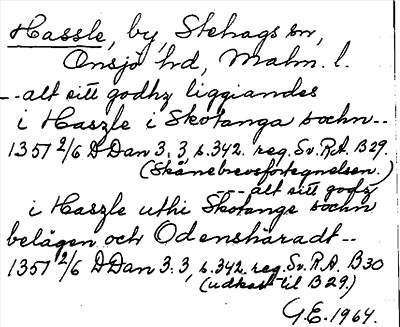 Hassle, by, Stehags sn,
Onsjö hd, Malm. l.
-- alt sitt godhz liggiandes
i Haszle i Skotanga sochn--
1351 2/6 D Dan 3: 3, s. 342. reg. Sv. R.A. B 29.
(Skånebrevsförtegnelsen.)
-- alt sitt godz
i Haszle uthi Skotange sochn
belägen och Odensharadt--
1351 2/6 D Dan 3: 3, s. 342. reg. Sv. R.A. B 30
(udkast til B 29.)
G.E. 1964.